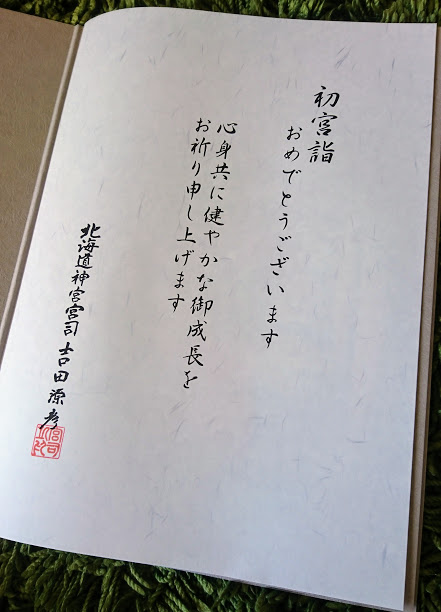 初宮詣
おめでとうございます
心身共に健やかな御成長を
お祈り申し上げます
北海道神宮宮司 吉田源彦